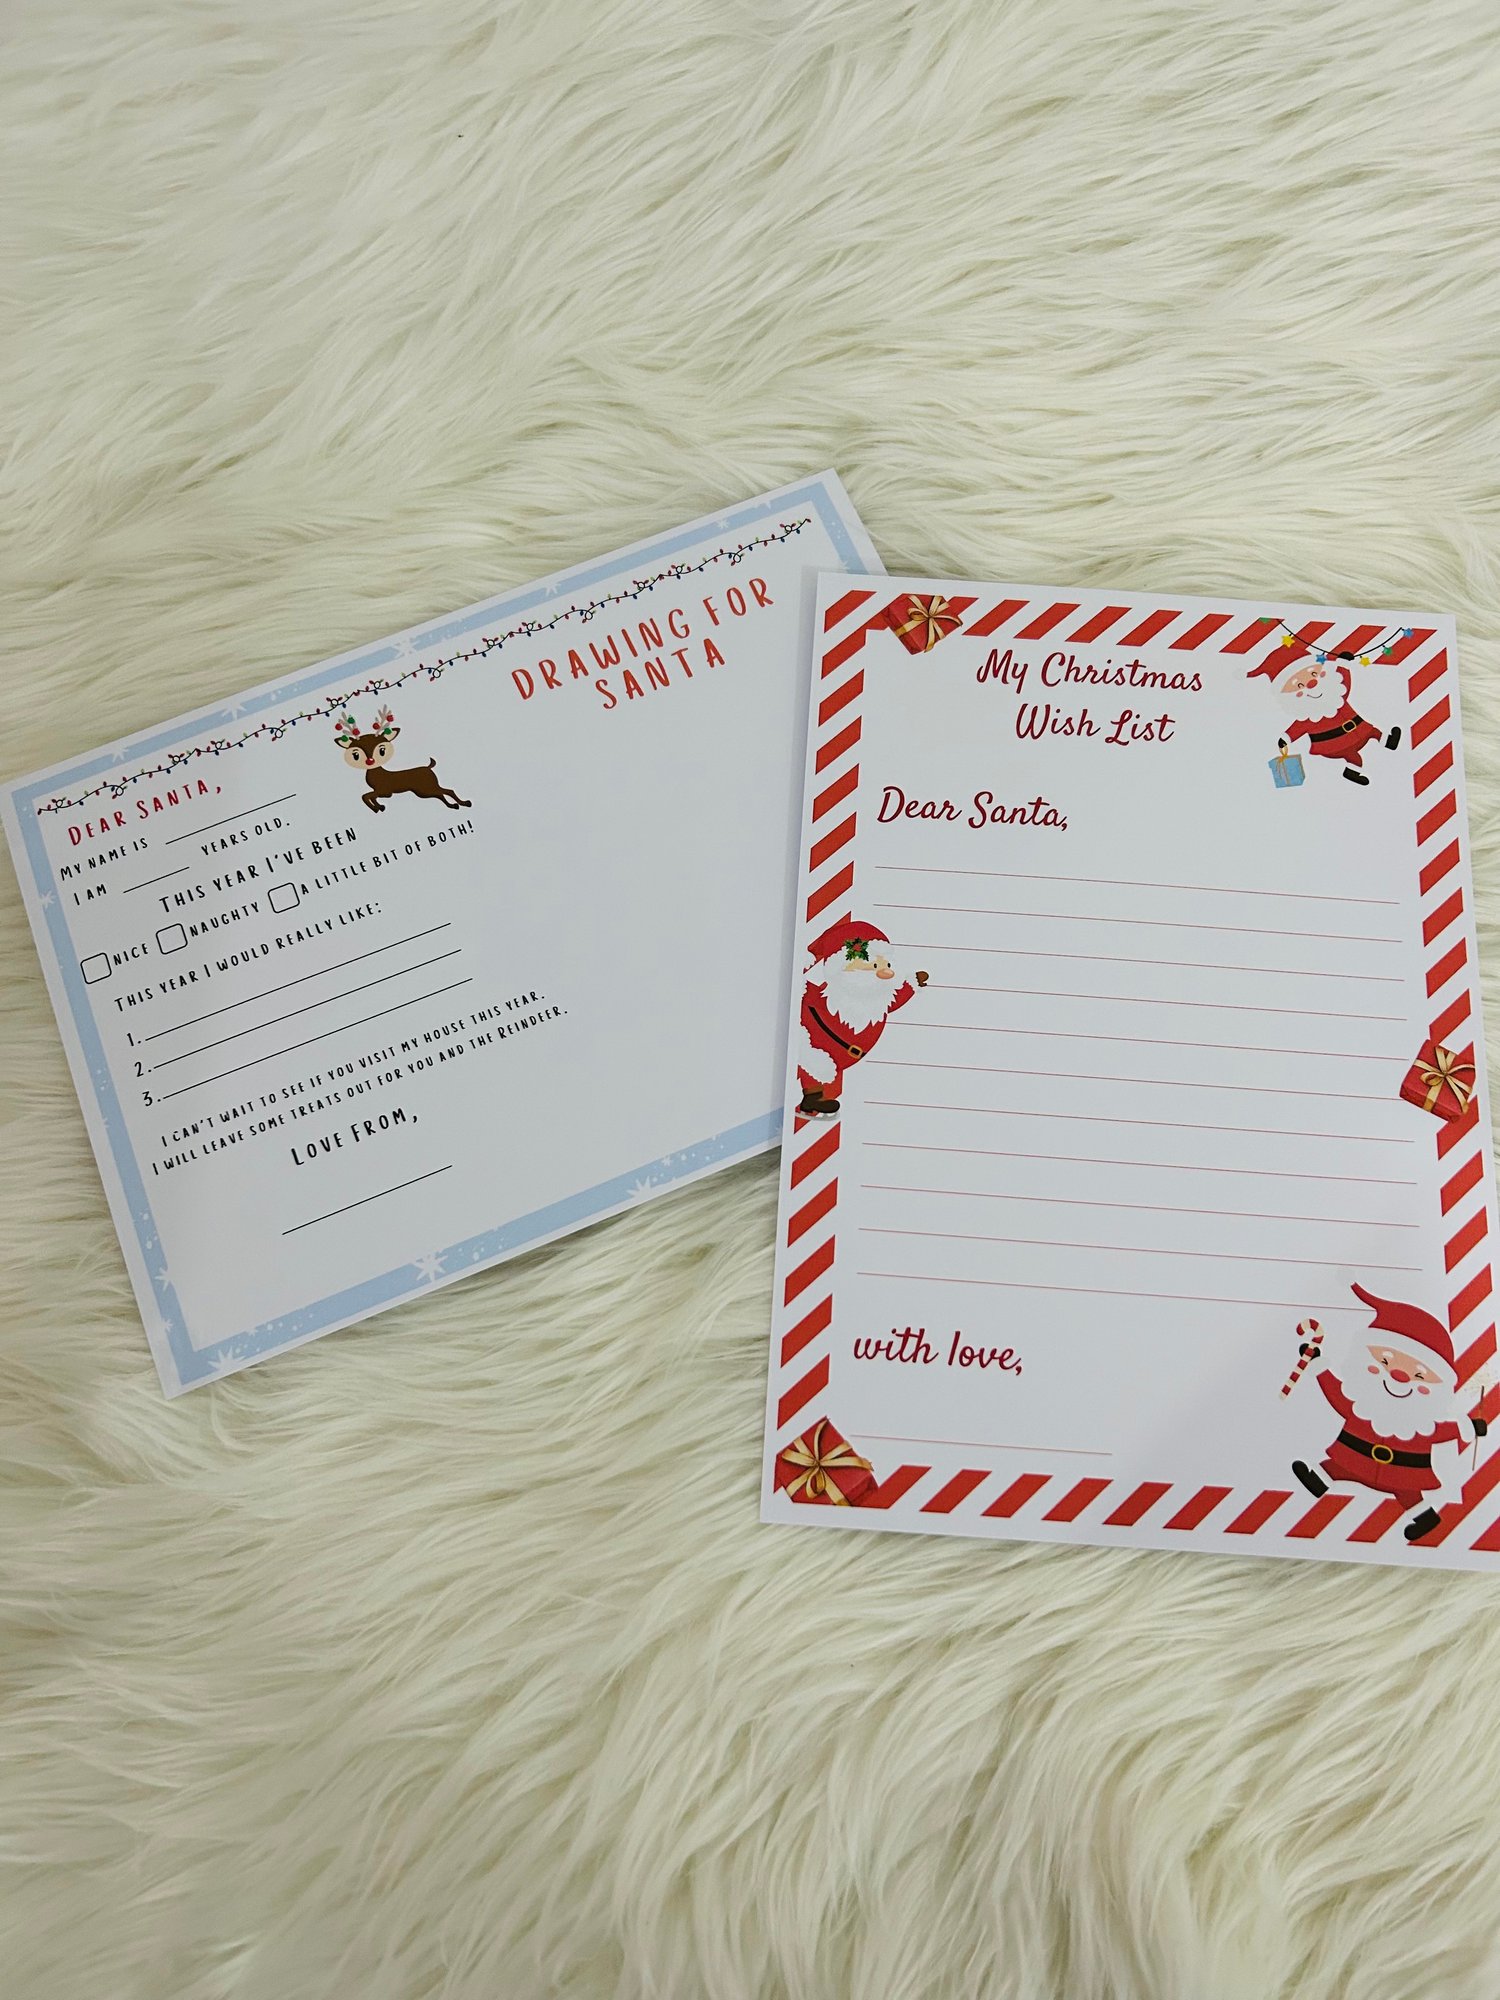 DEAR SANTA,
MY NAME IS
I AM YEARS OLD.
THIS YEAR I'VE BEEN
NICE NAUGHTY A LITTLE BIT OF BOTH!
THIS YEAR I WOULD REALLY LIKE:
1.
2.
3.
I CAN'T WAIT TO SEE IF YOU VISIT MY HOUSE THIS YEAR.
I WILL LEAVE SOME TREATS OUT FOR YOU AND THE REINDEER.
LOVE FROM,
DRAWING FOR
SANTA
My Christmas
Wish List
Dear Santa,
with love,